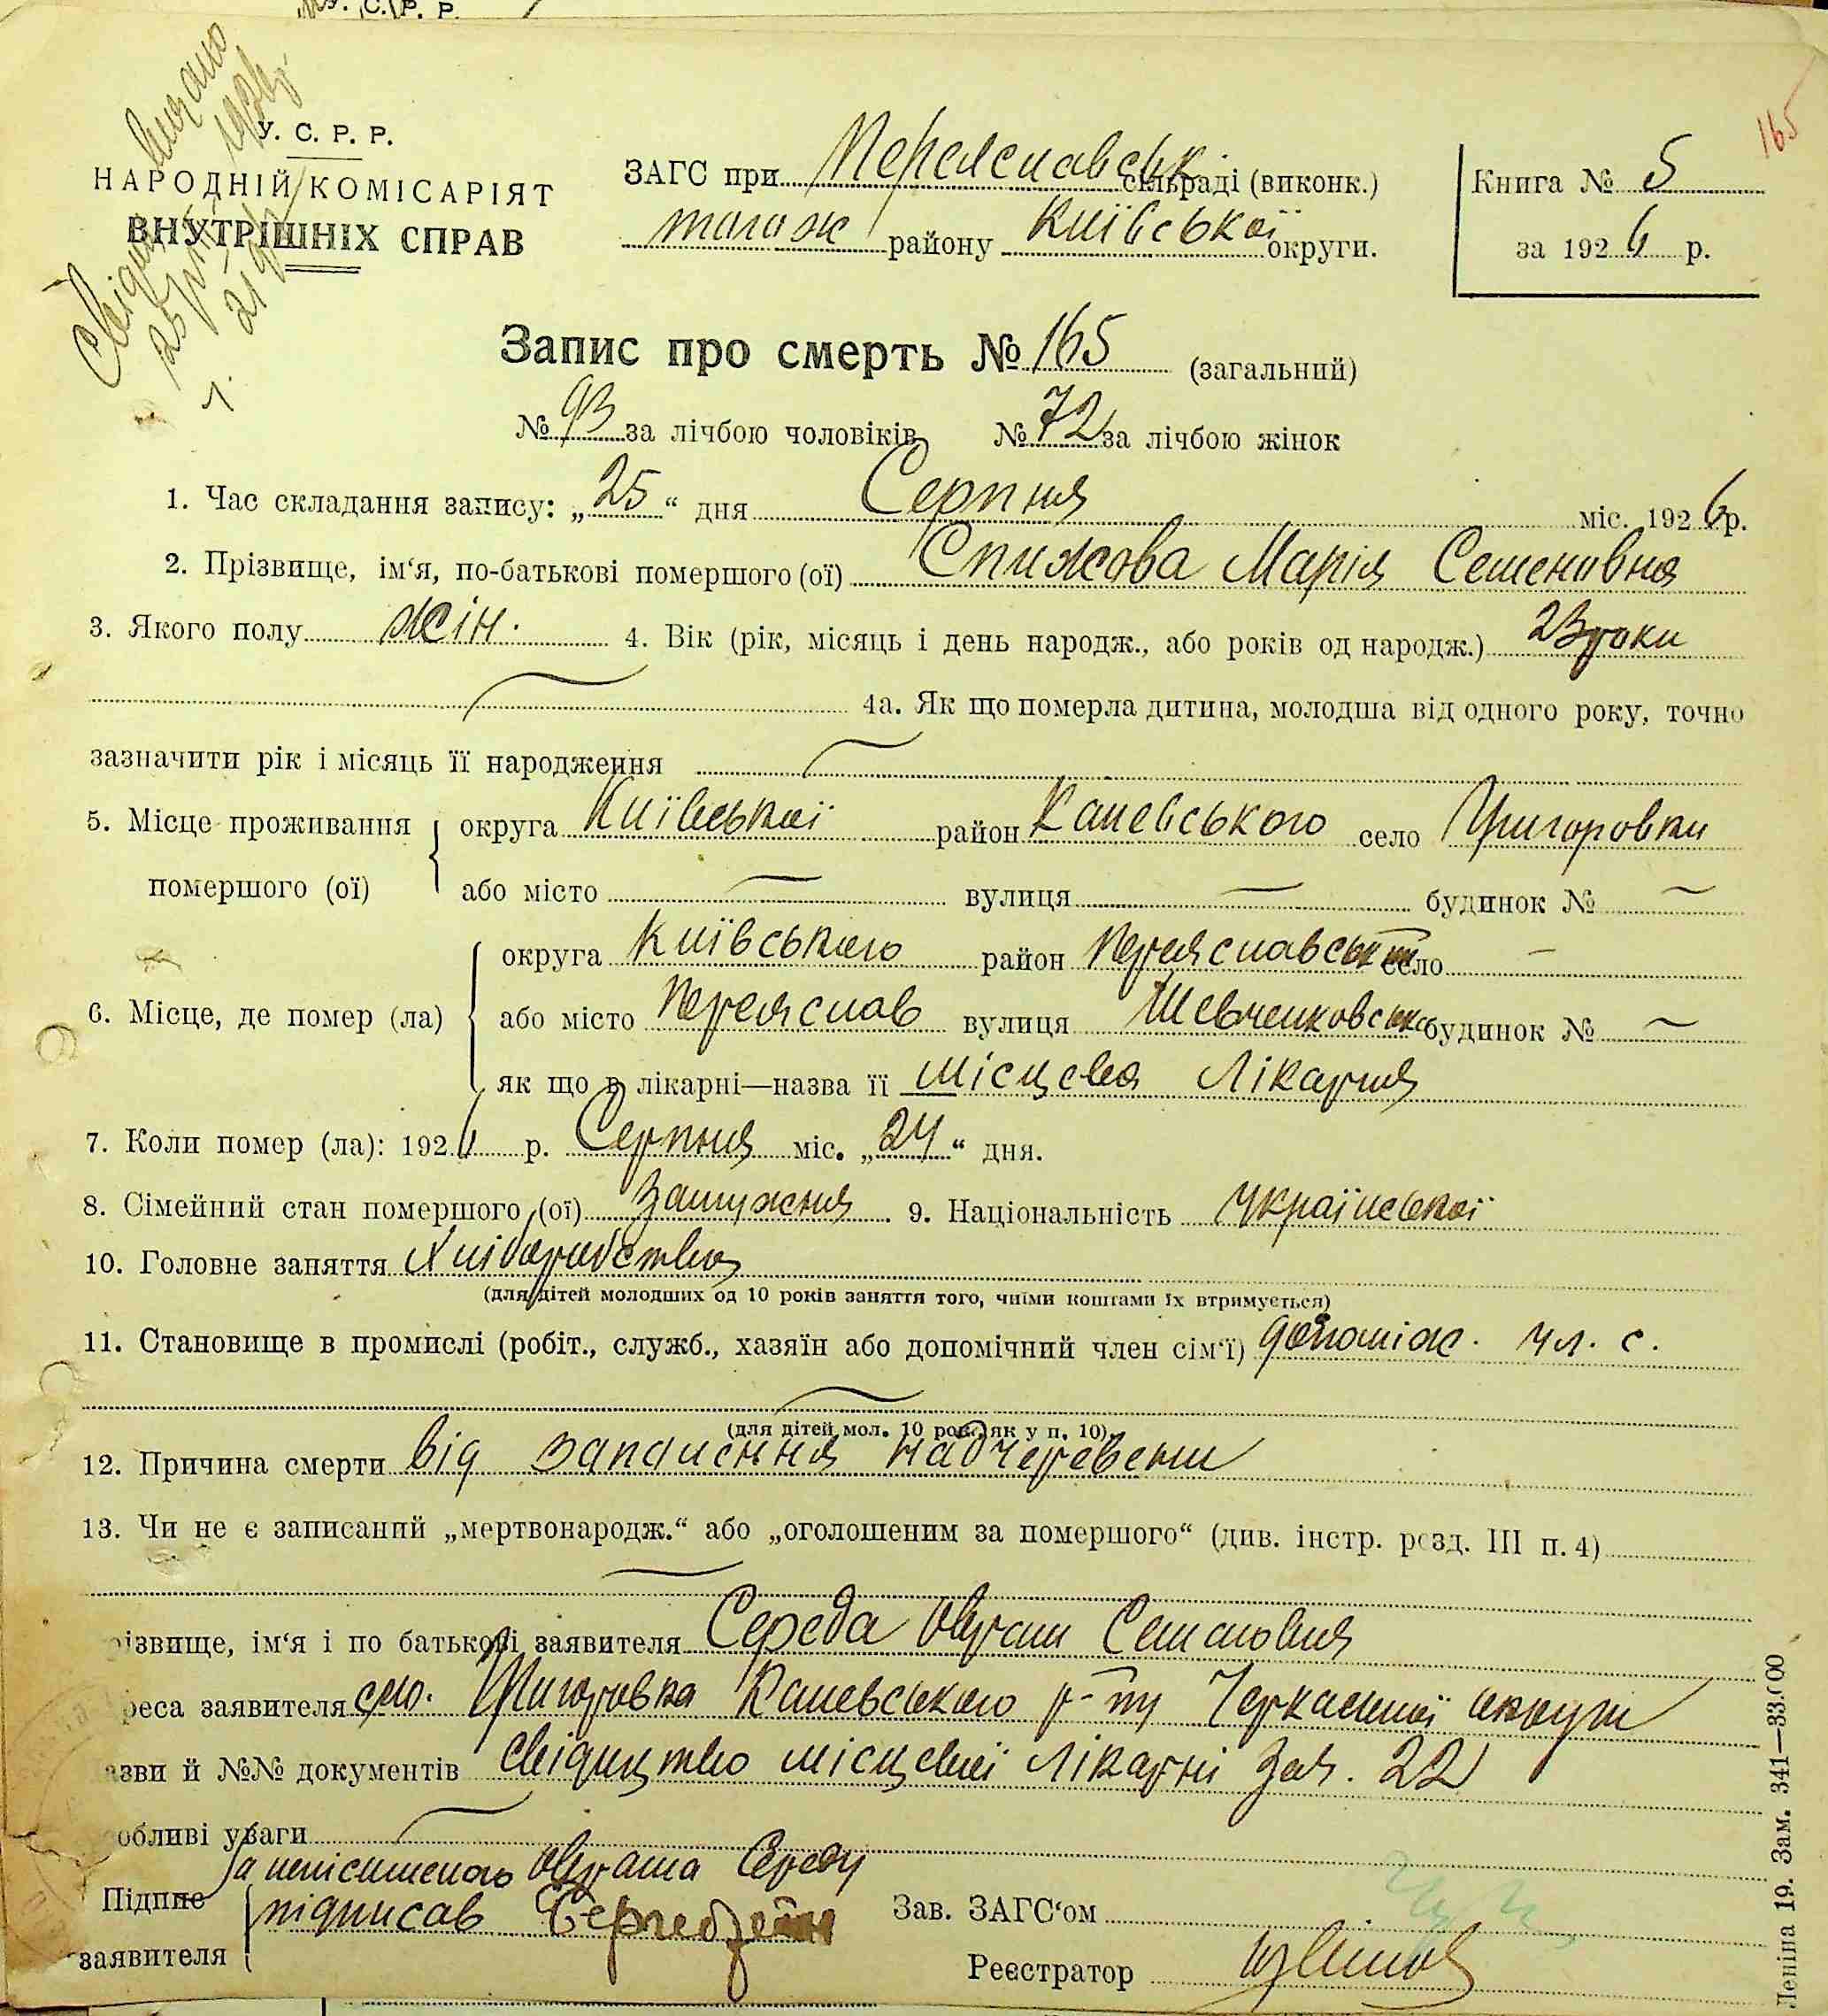 С. Р. Р.
165
У. С. Р. Р.
НАРОДНІЙ КОМІСАРІЯТ
ВНУТРІШНІХ СПРАВ
ЗАГС при Переяславськ сільраді (виконк.)
тогож району Київської округи.
Книга № 5
за 1926 р.
Запис про смерть № 165 (загальний)
№ 93 за лічбою чоловіків № 72 за лічбою жінок
1. Час складання запису: „25“ дня Серпня міс. 1926 р.
2. Прізвище, ім‘я, по-батькові помершого (ої) Спижова Марія Семеновна
3. Якого полу жін. 4. Вік (рік, місяць і день народж., або років од народж.) 23 роки
4а. Як що померла дитина, молодша від одного року, точно
зазначити рік і місяць її народження
5. Місце проживання помершого (ої) округа Київської район Каневського село Григоровки
або місто — вулиця — будинок № —
6. Місце, де помер (ла) округа Київського район Переяславськ село —
або місто Переяслав вулиця Шевченковськ будинок № —
як що в лікарні—назва її місцева Лікарня
7. Коли помер (ла): 1926 р. Серпня міс. „24“ дня.
8. Сімейний стан помершого (ої) Замужня 9. Національність Української
10. Головне заняття Хліборобство
(для дітей молодших од 10 років заняття того, чиїми коштами їх втримується)
11. Становище в промислі (робіт., служб., хазяїн або допомічний член сім‘ї) допоміж. чл. с.
(для дітей мол. 10 рок. як у п. 10)
12. Причина смерти від запалення надчеревени
13. Чи не є записаний „мертвонародж.“ або „оголошеним за помершого“ (див. інстр. розд. III п. 4)
ізвище, ім‘я і по батькові заявителя Середа Овраш Семеновия
реса заявителя село. Григоровка Каневського р-ну Черкаської округи
азви й №№ документів Свідицтво місцевої Лікарні за 22
обливі уваги
За неписьменого Овраша Середу
Підпис заявителя підписав
Зав. ЗАГС‘ом
Реєстратор
Леніна 19. Зам. 341—33.000